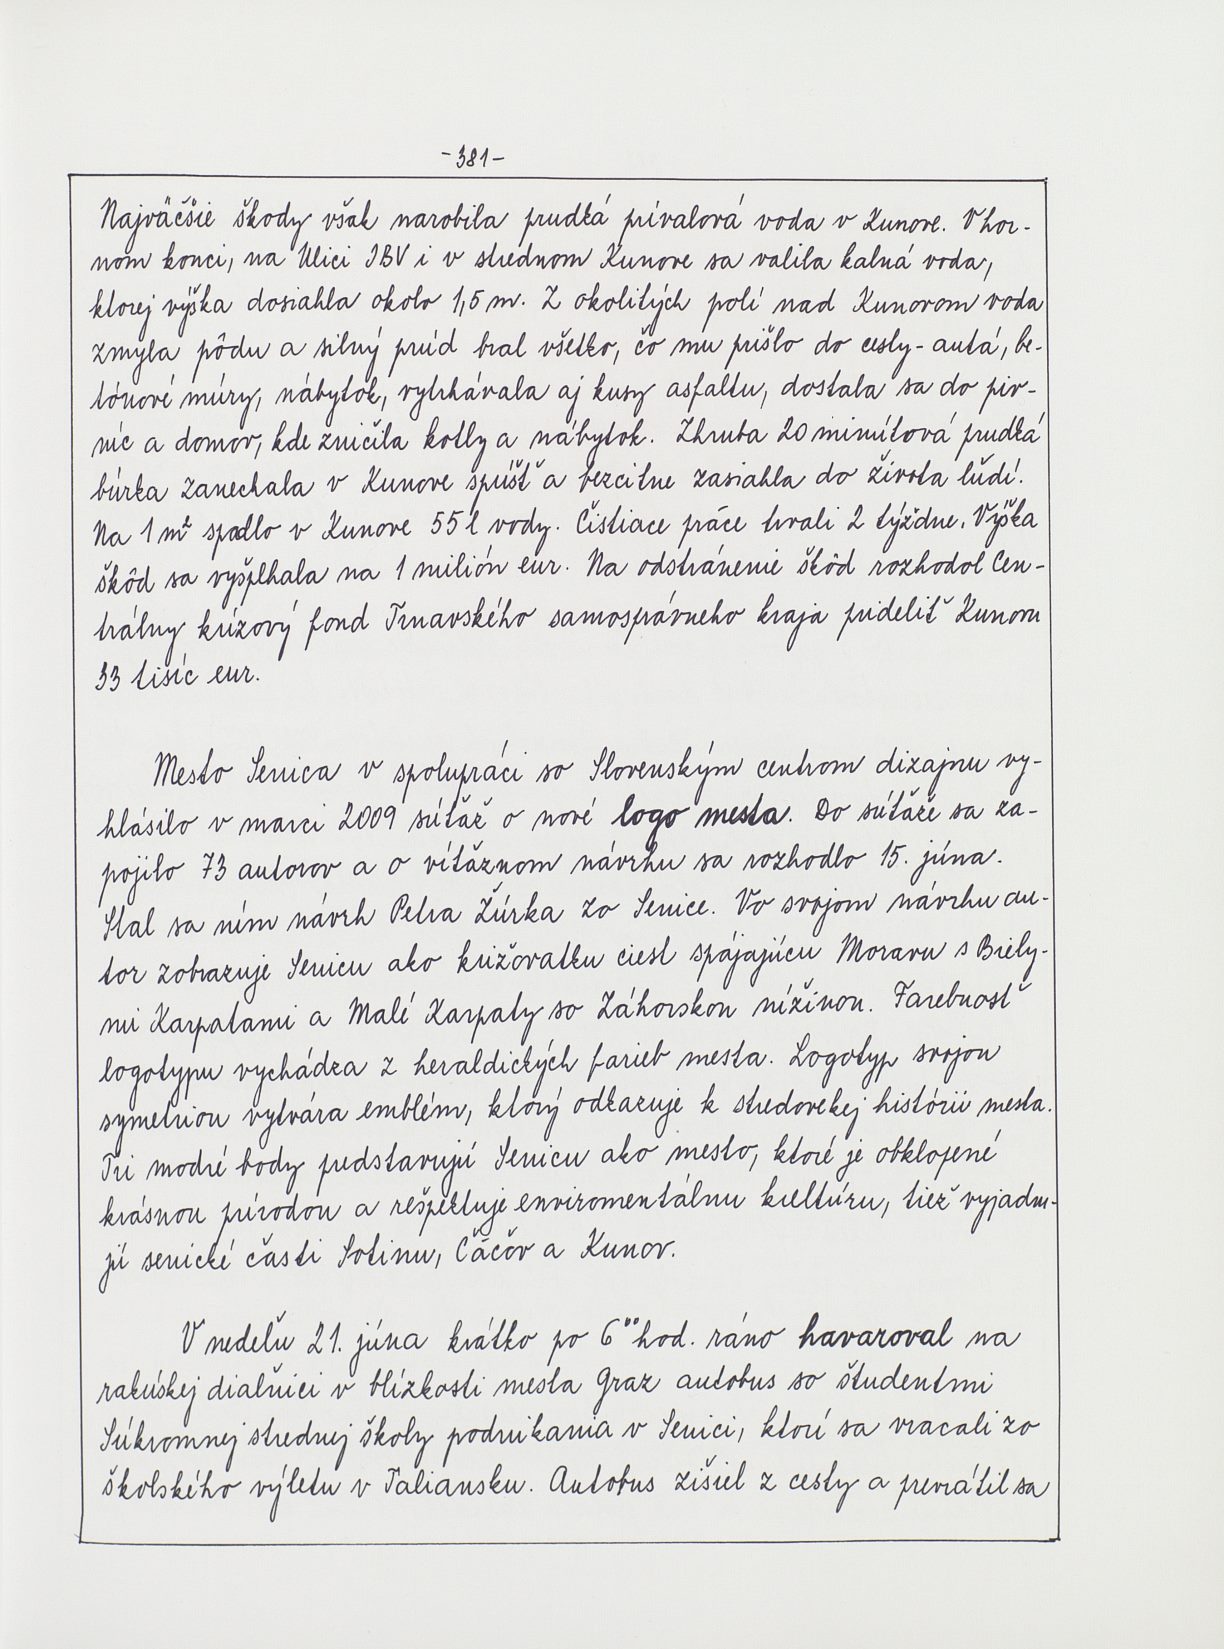 -381-
Najväčšie škody však narobila prudká prívalová voda v Kunove. V hor-
nom konci, na Ulici IBV i v strednom Kunove sa valila kalná voda,
ktorej výška dosiahla okolo 1,5 m. Z okolitých polí nad Kunovom voda
zmyla pôdu a silný prúd bral všetko, čo mu prišlo do cesty - autá, be-
tónové múry, nábytok, vytrhávala aj kusy asfaltu, dostala sa do piv-
níc a domov, kde zničila kotly a nábytok. Zhruba 20 minútová prudká
búrka zanechala v Kunove spúšť a bezcitne zasiahla do života ľudí.
Na 1 m² spadlo v Kunove 55 l vody. Čistiace práce trvali 2 týždne. Výška
škôd sa vyšplhala na 1 milión eur. Na odstránenie škôd rozhodol Cen-
trálny krízový fond Trnavského samosprávneho kraja prideliť Kunovu
33 tisíc eur.
Mesto Senica v spolupráci so Slovenským centrom dizajnu vy-
hlásilo v marci 2009 súťaž o nové logo mesta. Do súťaže sa za-
pojilo 73 autorov a o víťaznom návrhu sa rozhodlo 15. júna.
Stal sa ním návrh Petra Žúrka zo Senice. Vo svojom návrhu au-
tor zobrazuje Senicu ako križovatku ciest spájajúcu Moravu s Biely-
mi Karpatami a Malé Karpaty so Záhorskou nížinou. Farebnosť
logotypu vychádza z heraldických farieb mesta. Logotyp svojou
symetriou vytvára emblém, ktorý odkazuje k stredovekej histórii mesta.
Tri modré body predstavujú Senicu ako mesto, ktoré je obklopené
krásnou prírodou a rešpektuje enviromentálnu kultúru, tiež vyjadru-
jú senické časti Sotinu, Čáčov a Kunov.
V nedeľu 21. júna krátko po 6⁰⁰ hod. ráno havaroval na
rakúskej diaľnici v blízkosti mesta Graz autobus so študentmi
Súkromnej strednej školy podnikania v Senici, ktorí sa vracali zo
školského výletu v Taliansku. Autobus zišiel z cesty a prevrátil sa